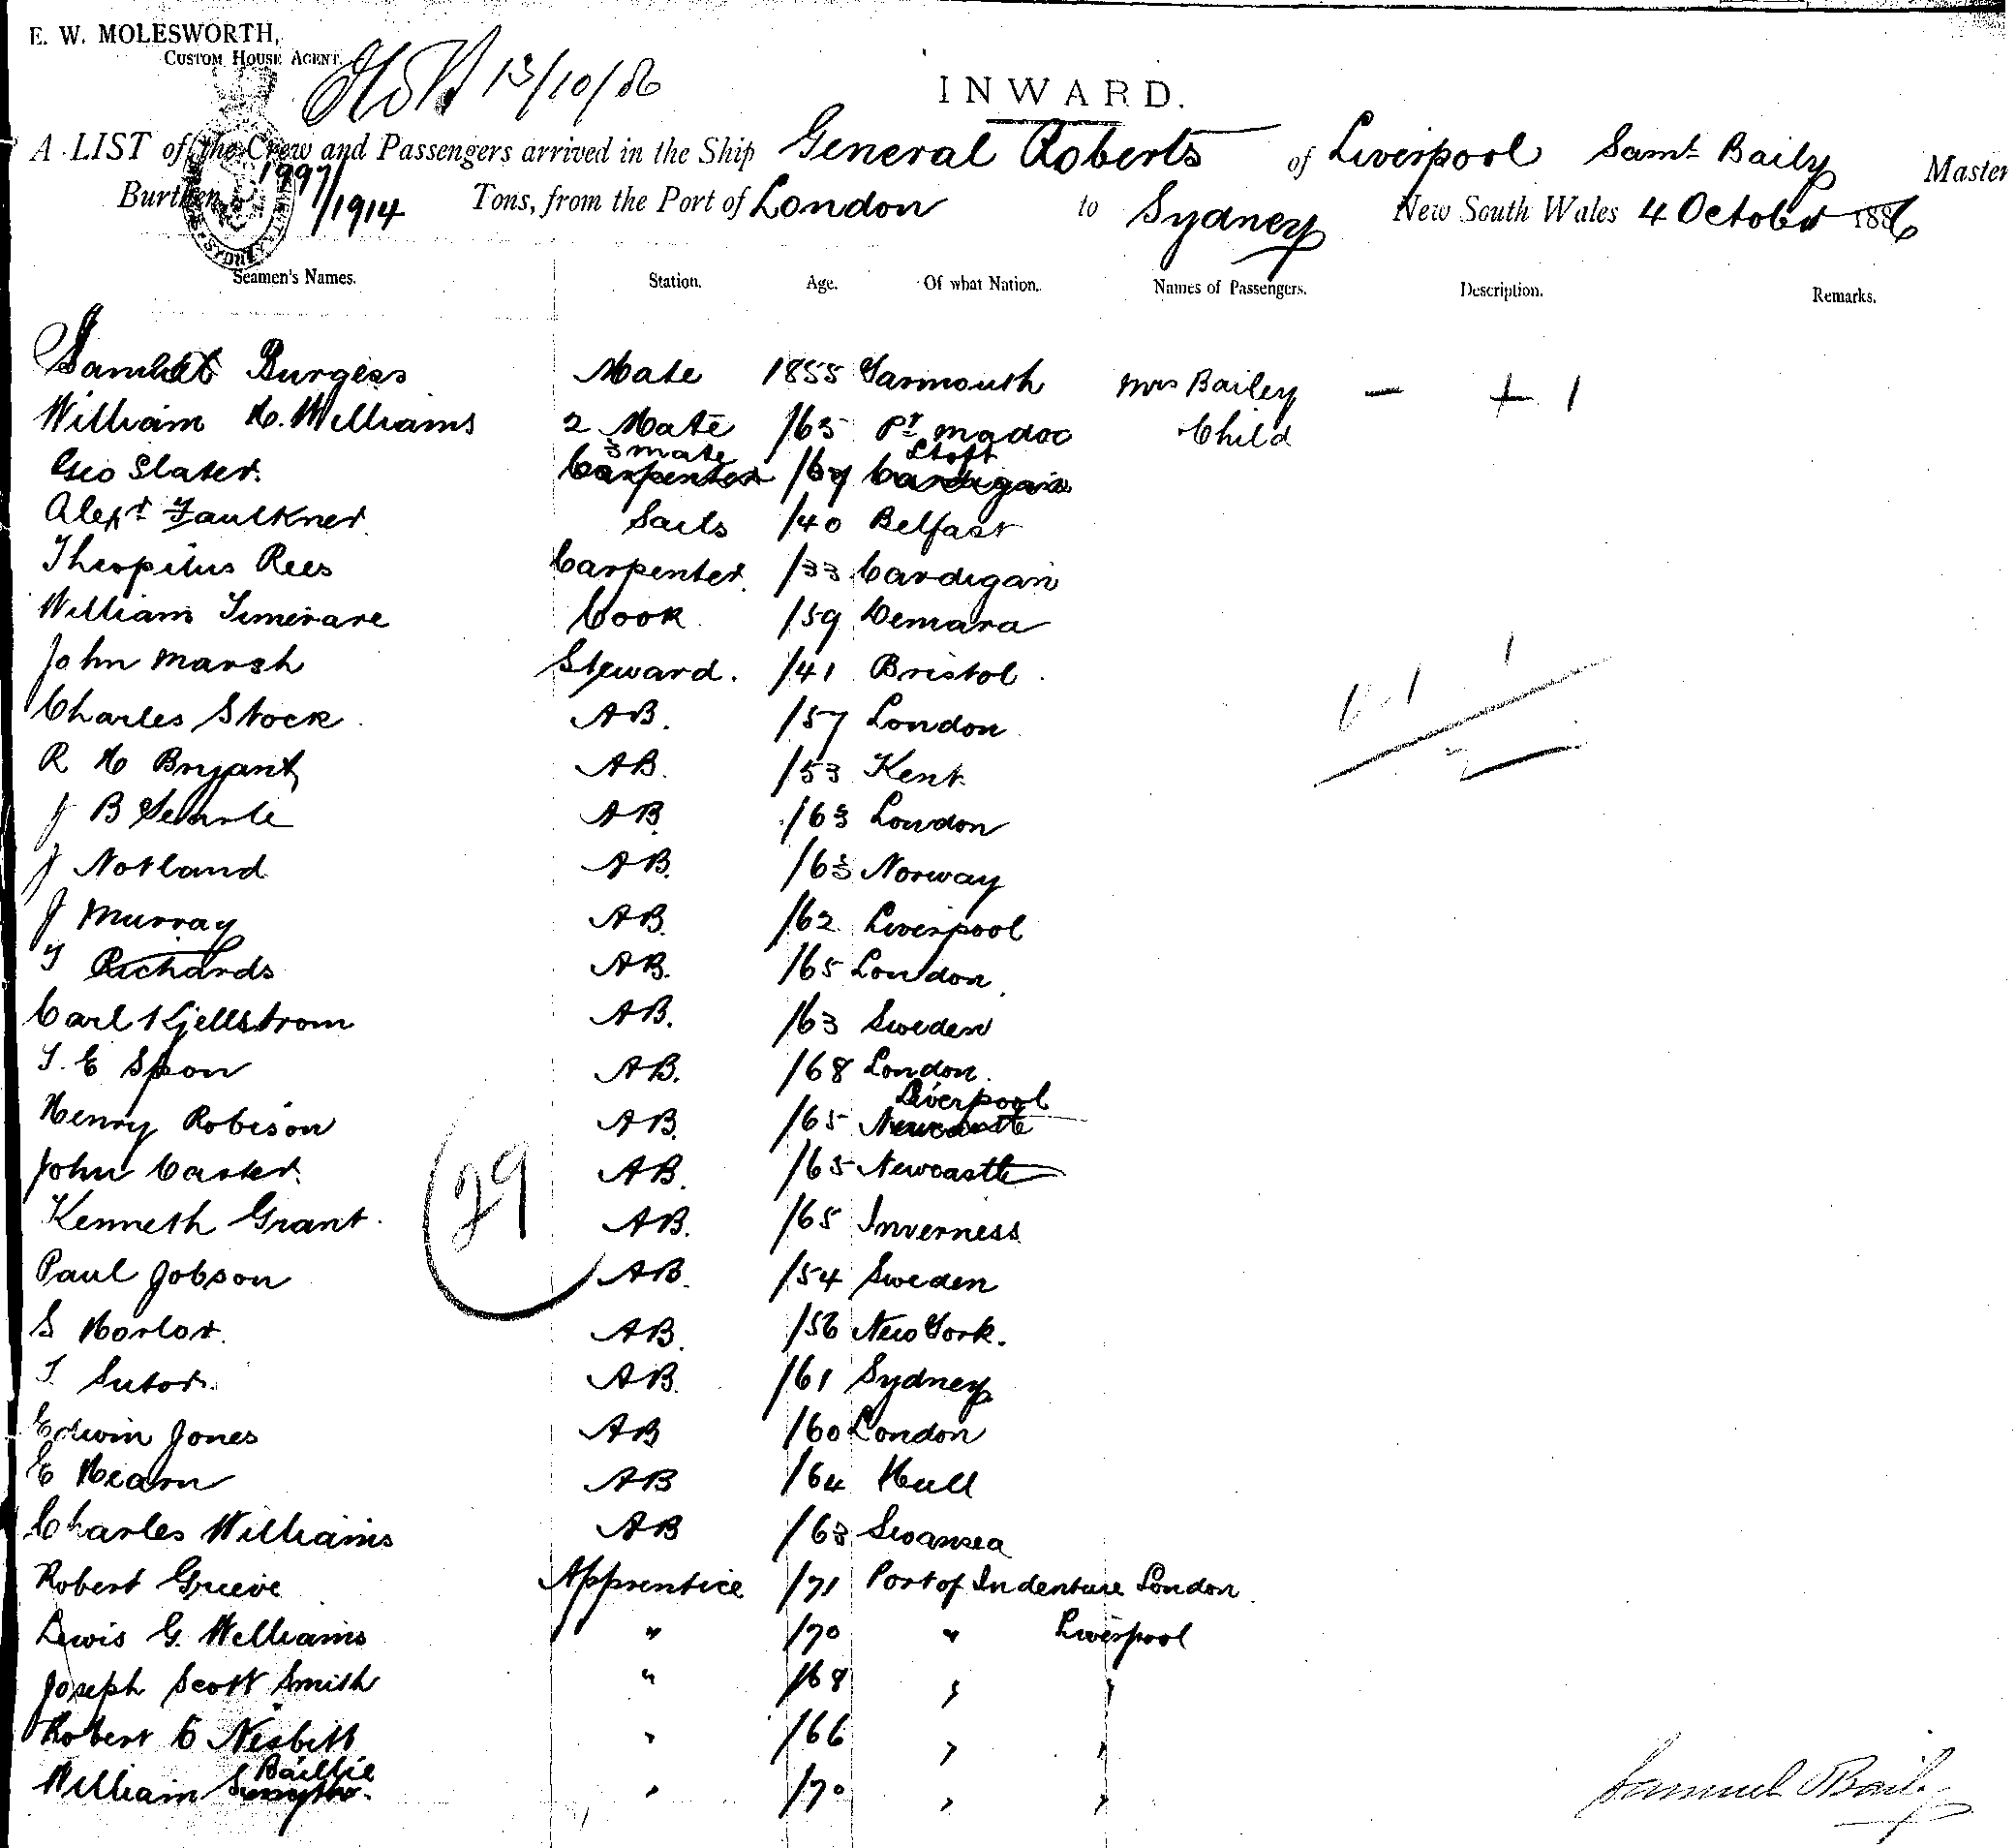 E. W. MOLESWORTH,
CUSTOM HOUSE AGENT.
13/10/86
INWARD.
A LIST of the Crew and Passengers arrived in the Ship General Roberts of Liverpool Saml Baily Master
Burthen 1997/1914 Tons, from the Port of London to Sydney New South Wales 4 October 1886
Seamen's Names. Station. Age. Of what Nation. Names of Passengers. Description. Remarks.
Burgess Mate 1855 Yarmouth Mrs Bailey — + 1
William H. Williams 2 Mate /65 Pt Madoc Child
3 mate
Geo Slater. Carpenter /67 Cardigan
Alexr Faulkner Sails /40 Belfast
Theopilus Rees Carpenter /33 Cardigan
William Timerare Cook /59 Demara
John Marsh Steward. /41 Bristol
Charles Stock AB. /57 London
R H Bryant AB. /53 Kent
J B Searle AB /63 London
J Notland AB. /63 Norway
J Murray AB. /62 Liverpool
T Richards AB. /65 London
Carl Kjellstrom AB. /63 Sweden
T. E Spon AB. /68 London
Liverpool
Henry Robison AB. /65 Newcastle
John Carter. AB. /65 Newcastle
Kenneth Grant AB. /65 Inverness
29
Paul Jobson AB. /54 Sweden
S Horlor. AB. /56 New York.
T Sutor. AB. /61 Sydney
Edwin Jones AB /60 London
E Hearn AB /64 Hull
Charles Williams AB /63 Swansea
Robert Greive Apprentice /71 Port of Indenture London
Lewis G. Williams " /70 " Liverpool
Joseph Scott Smith " /68 " "
Robert C Nesbitt " /66 " "
Baillie
William " /70 " "
Samuel Baily